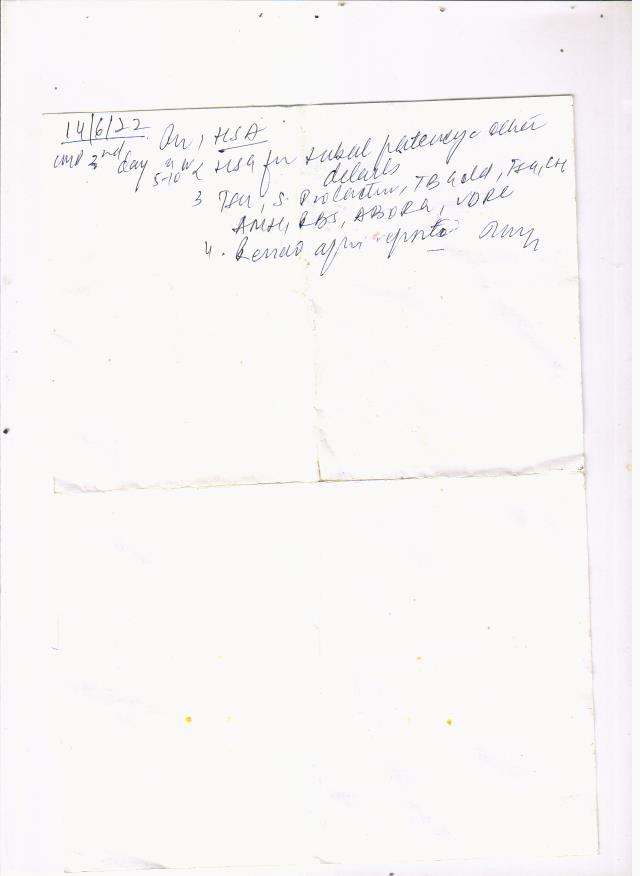 14/6/22 Adv, HSA
LMP 3nd day 2 HSG for tubal patency & other
5-10 details
3 TSH, S. Prolactin, TB Gold, FSH, LH
AMH, RBS, ABORh, VDRL
4. Review after reports